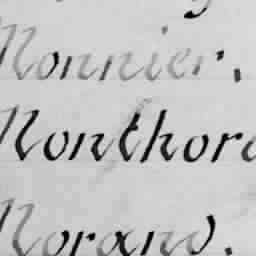 Monnier.
Monthora
Morand.